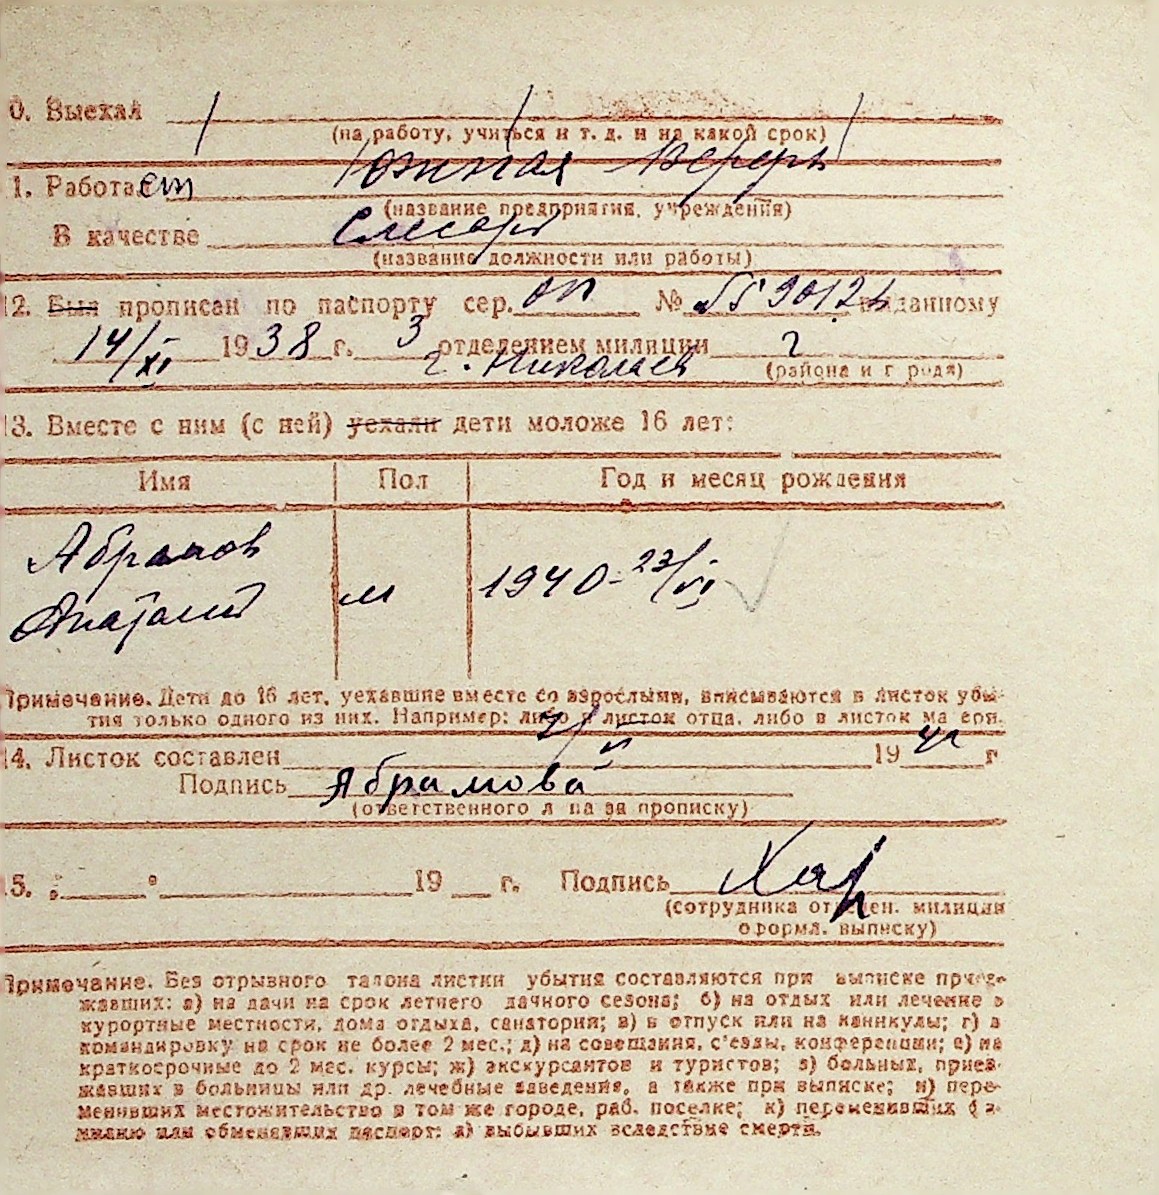 0. Выехал
(на работу, учиться и т. д. и на какой срок)
Южная Верфь
1. Работает
(название предприятия, учреждения)
В качестве Слесарь
(название должности или работы)
12. Был прописан по паспорту сер. ОП № 559012 выданному
14/XI 1938 г. 3 отделением милиции г
г. Николаев (района и г рода)
13. Вместе с ним (с ней) уехали дети моложе 16 лет:
Имя Пол Год и месяц рождения
Абрамов
Анатолий м 1940-23/VI
Примечание. Дети до 16 лет, уехавшие вместе со взрослыми, вписываются в листок убы-
тия только одного из них. Например: либо в листок отца, либо в листок ма ери.
14. Листок составлен 19 41 г
Подпись Абрамова
(ответственного л ца за прописку)
15. 19 г. Подпись Хар
(сотрудника отделен. милиции
оформл. выписку)
Примечание. Без отрывного талона листки убытия составляются при выписке приез-
жавших: а) на дачи на срок летнего дачного сезона; б) на отдых или лечение в
курортные местности, дома отдыха, санатории; в) в отпуск или на каникулы; г) в
командировку на срок не более 2 мес.; д) на совещания, с'езды, конференции; е) на
краткосрочные до 2 мес. курсы; ж) экскурсантов и туристов; з) больных, приез-
жавших в больницы или др. лечебные заведения, а также при выписке; и) пере-
менивших местожительство в том же городе, раб. поселке; к) переменивших фа-
милию или обменявших паспорт; л) выбывших вследствие смерти.